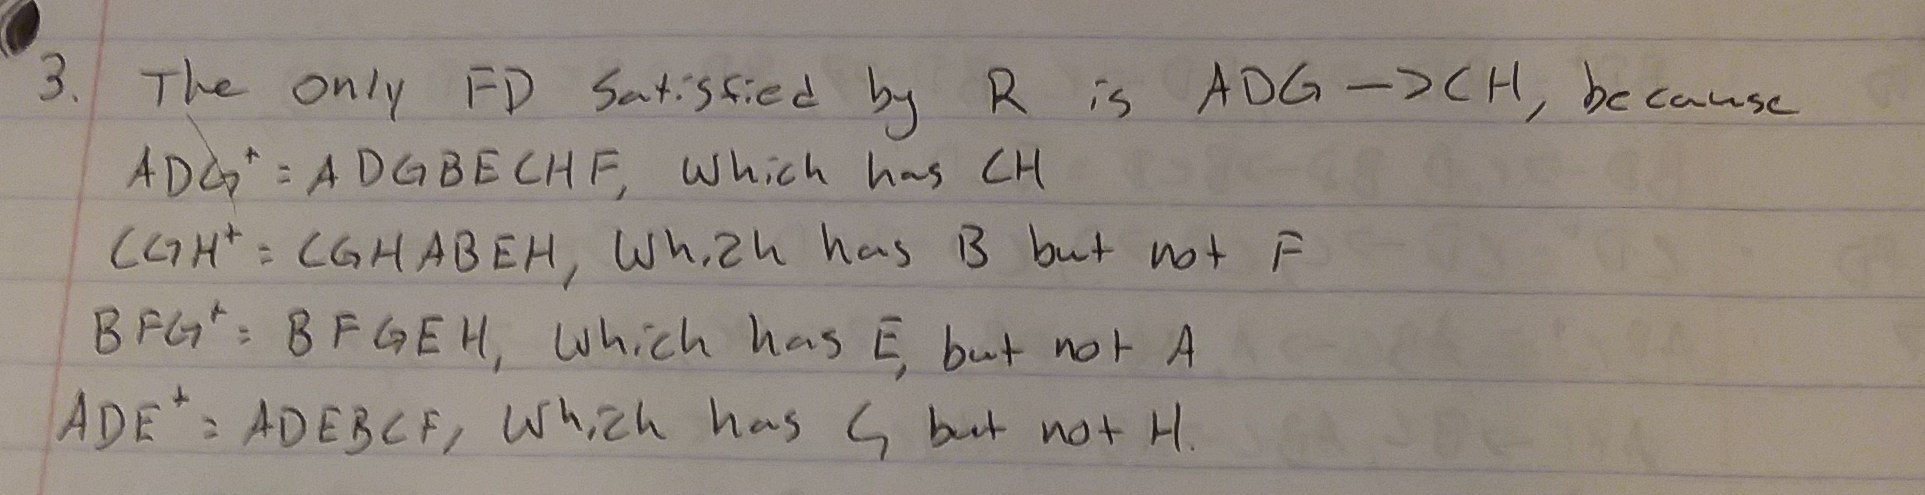 3. The only FD satisfied by R is ADG -> CH, because
ADG+ = ADGBECHF, which has CH
CGH+ = CGHABEH, which has B but not F
BFG+ = BFGEH, which has E, but not A
ADE+ = ADEBCF, which has G but not H.